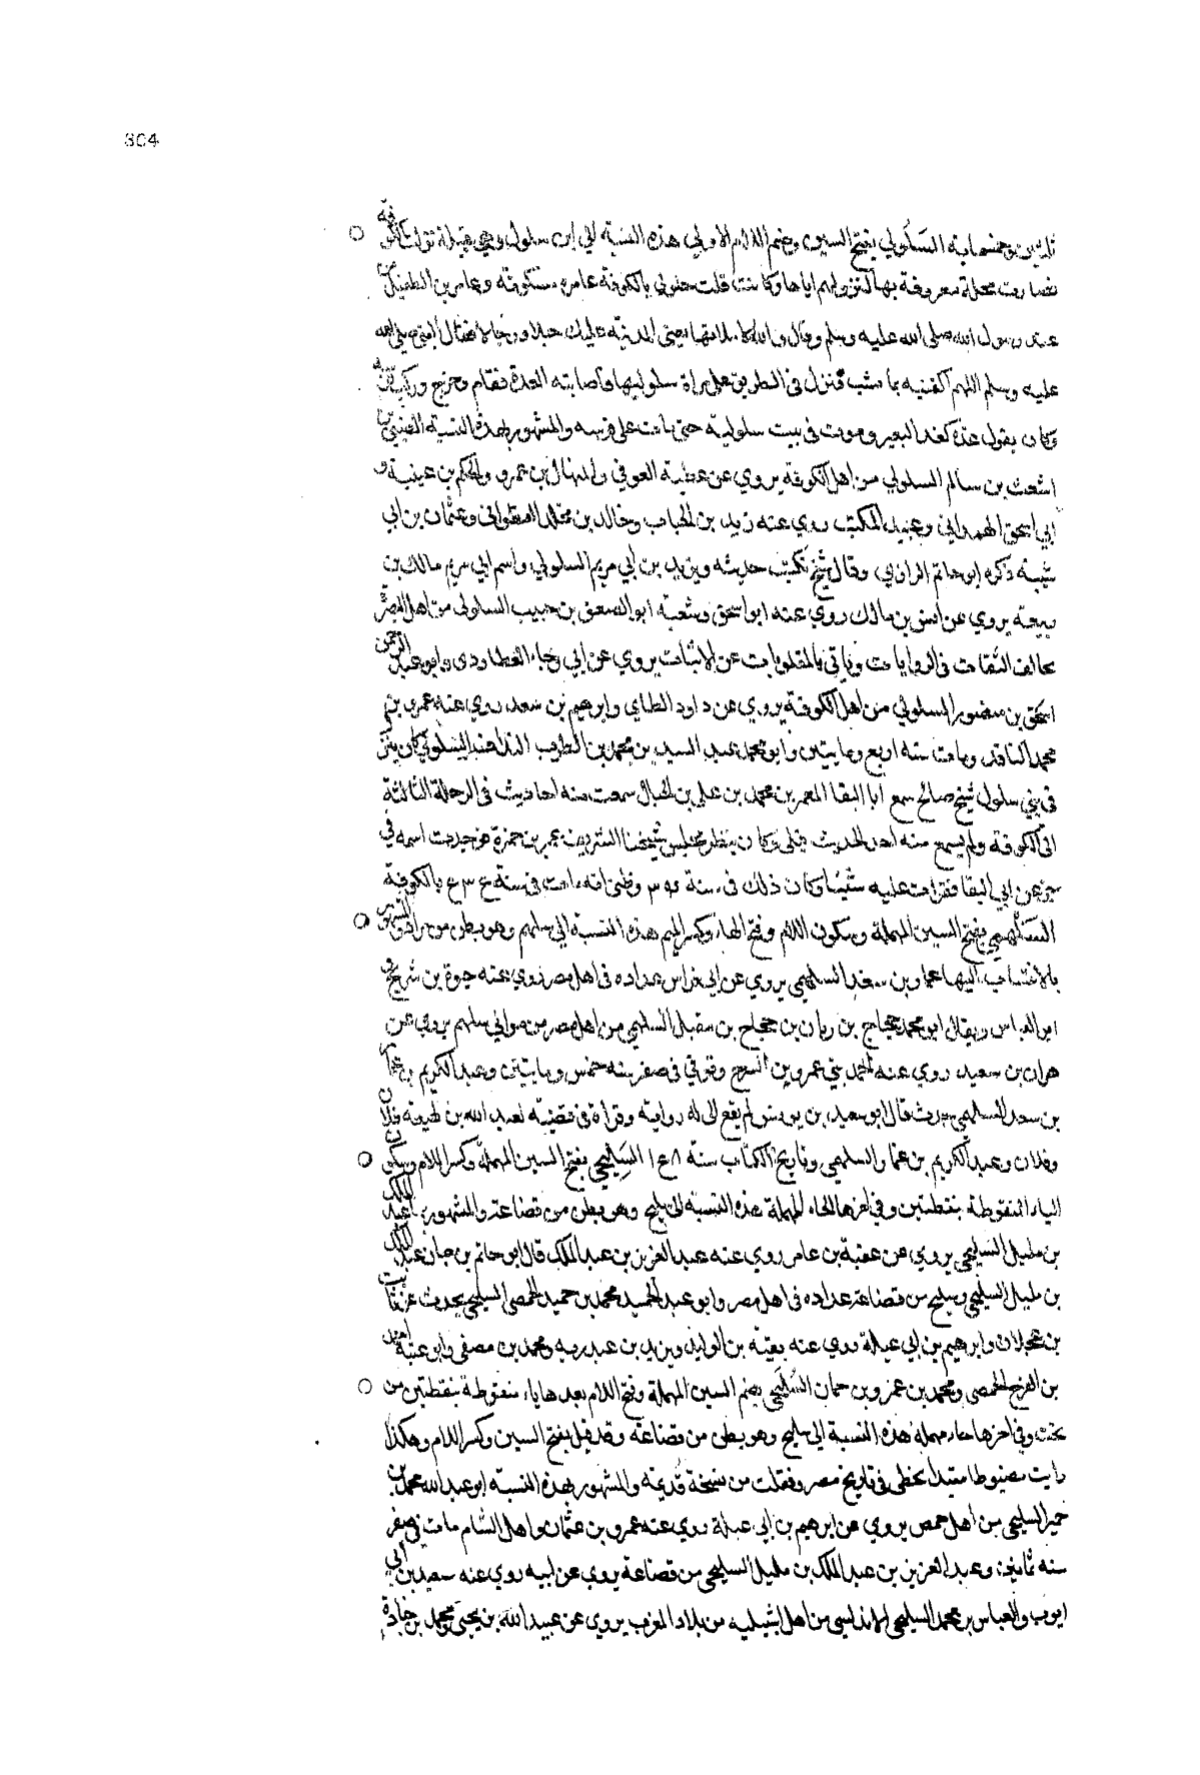 304
ثلثين وخمسمايه السَلُولي بفتح السين وضم اللام الاولي هذه النسبة الي بني سلول وهي قبيلة نزلت الكوفة
فصارت محلة معروفة بها لنزولهم اياها وكانت قلت حلولي بالكوفة عامره مسكونة وعامر بن الطفيل
عند رسول الله صلى الله عليه وسلم وقال والله لاملانها يعني المدينة عليك خيلا ورجلا فقال النبي صلى الله
عليه وسلم اللهم اكفنيه بما شئت فنزل في الطريق على امراة سلولية فاصابته الغدة فقام وخرج وركب
وكان يقول غدة كغدة البعير وموت في بيت سلولية حتى مات على فرسه والمشهور بهذه النسبة
اشعث بن سالم السلولي من اهل الكوفة يروي عن عطية العوفي والمنهال بن عمرو والحكم بن عيينة و
ابي اسحق الهمداني وعبيد المكتب روي عنه زيد بن الحباب وخالد بن مخلد القطواني وعثمان بن ابي
شيبة ذكره ابو حاتم الرازي وقال شيخ يكتب حديثه ويزيد بن ابي مريم السلولي واسم ابي مريم مالك بن
ربيعة يروي عن انس بن مالك روي عنه ابو اسحق وشعبة ابو الصعق بن حبيب السلولي من اهل البصرة
يخالف الثقات في الروايات وياتي بالمقلوبات عن الاثبات يروي عن ابي رجاء العطاردي وابو عبد الرحمن
اسحق بن منصور السلولي من اهل الكوفة يروي عن داود الطاي وابرهيم بن سعد روي عنه عمرو بن
محمد الناقد ومات سنه اربع ومايتين وابو محمد عبد السيد بن محمد بن الطيب السلولي كان ينزل
في بني سلول شيخ صالح سمع ابا البقا المعمر بن محمد بن علي بن الحبال سمعت منه احاديث في الرحلة الثالثة
الى الكوفة ولم يسمع منه احد الحديث قبلي وكان ينظر مجلس شيخنا الشريف عمر بن حمزة فوجدت اسمه في
جزء عن ابي البقا فقرات عليه شيئا وكان ذلك في سنة وظني انه مات في سنة بالكوفة
السَلْهمي بفتح السين المهملة وسكون اللام وفتح الهاء وكسر الميم هذه النسبة الي سلهم وهو بطن من مراد والمشهور
بالانتساب اليها عمار بن سعد السلهمي يروي عن ابي فراس عداده في اهل مصر روي عنه حيوة بن شريح و
ابو محمد حجاج بن ريان بن حجاج بن مقبل السلهمي من اهل مصر من موالي سلهم يروي عن
بن سعيد روي عنه احمد بن عمرو بن السرح وتوفي في صفر سنه خمس ومايتين وعبد الكريم بن عمار
بن سعد السلهمي حدث قال ابو سعيد بن يونس لم يقع الي له رواية وقراة في قضية لعبد الله بن لهيعة فلان
وفلان وعبد الكريم بن عمار السلهمي وتاريخ الكتاب سنة السَلِيحي بفتح السين المهملة وكسر اللام وسكون
الياء المنقوطة بنقطتين وفي اخرها الحاء المهملة هذه النسبة الى سليح وهو بطن من قضاعة والمشهور بها عبد الملك
بن مليل السليحي يروي عن عقبة بن عامر روي عنه عبد العزيز بن عبد الملك قال ابو حاتم بن حبان عبد الملك
بن مليل السليحي وسليح من قضاعة عداده في اهل مصر وابو عبد الحميد محمد بن حمير الحمصي السليحي يحدث عن ثابت
بن عجلان وابرهيم بن ابي عبلة روي عنه بقية بن الوليد ويزيد بن عبد ربه ومحمد بن مصفى وابو عتبة احمد
بن الفرج الحمصي ومحمد بن عمرو بن حمان السُلَيحي بضم السين المهملة وفتح اللام بعدها ياء منقوطة بنقطتين من
تحت وفي اخرها حاء مهمله هذه النسبة الى سليح وهو بطن من قضاعة وقد قيل بفتح السين وكسر اللام وهكذا
رايت مضبوطا مقيدا بخطي في تاريخ مصر ونقلت من نسخة قديمة والمشهور بهذه النسبة ابو عبد الله محمد بن
حمير السليحي من اهل حمص يروي عن ابرهيم بن ابي عبلة روي عنه عمرو بن عثمان واهل الشام مات في صفر
سنه ثمانين وعبد العزيز بن عبد الملك بن مليل السليحي من قضاعة يروي عن ابيه روي عنه سعيد بن ابي
ايوب والعباس بن محمد السليحي الاندلسي من اهل اشبيليه من بلاد المغرب يروي عن عبيد الله بن يحيى ومحمد بن جنادة